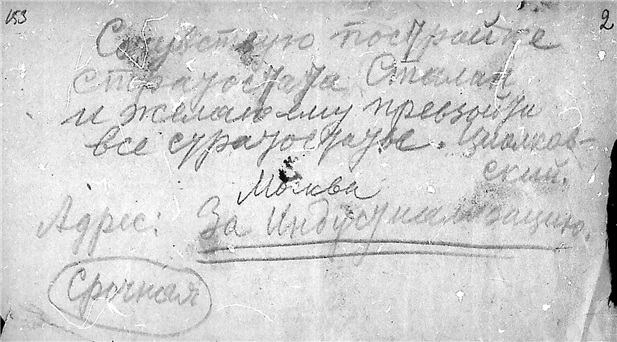 153
2
Сочувствую постройке
стратостата Сталин
и желаю ему превзойти
все стратостаты. Циолков-
ский.
Москва
Адрес: За Индустриализацию.
Срочная